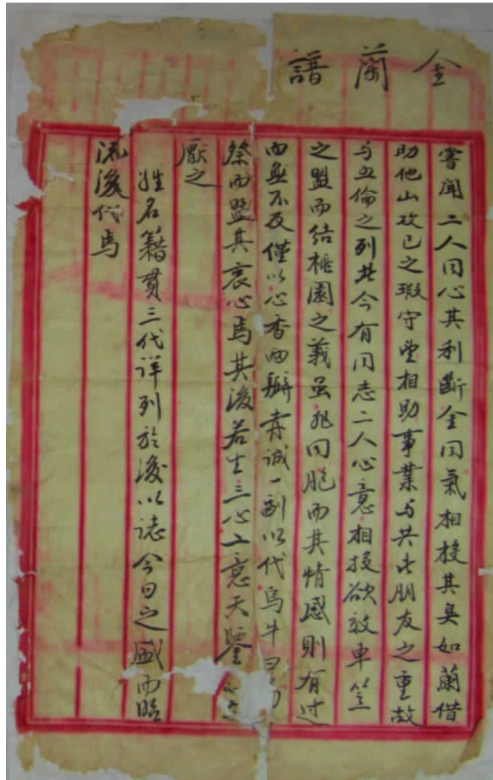 金蘭譜
嘗聞二人同心其利斷金同氣相投其臭如蘭借
助他山攻己之瑕守望相助事業与共此朋友之重故
与五倫之列焉今有同志二人心意相投欲效車笠
之盟而結桃園之義虽非同胞而其情感則有过
而無不及僅以心香两瓣青诚一副以代烏牛白馬
祭而盟其衷心焉其後若生三心二意天鑒
厭之
姓名籍貫三代详列於後以誌今日之盛而臨
流後代焉